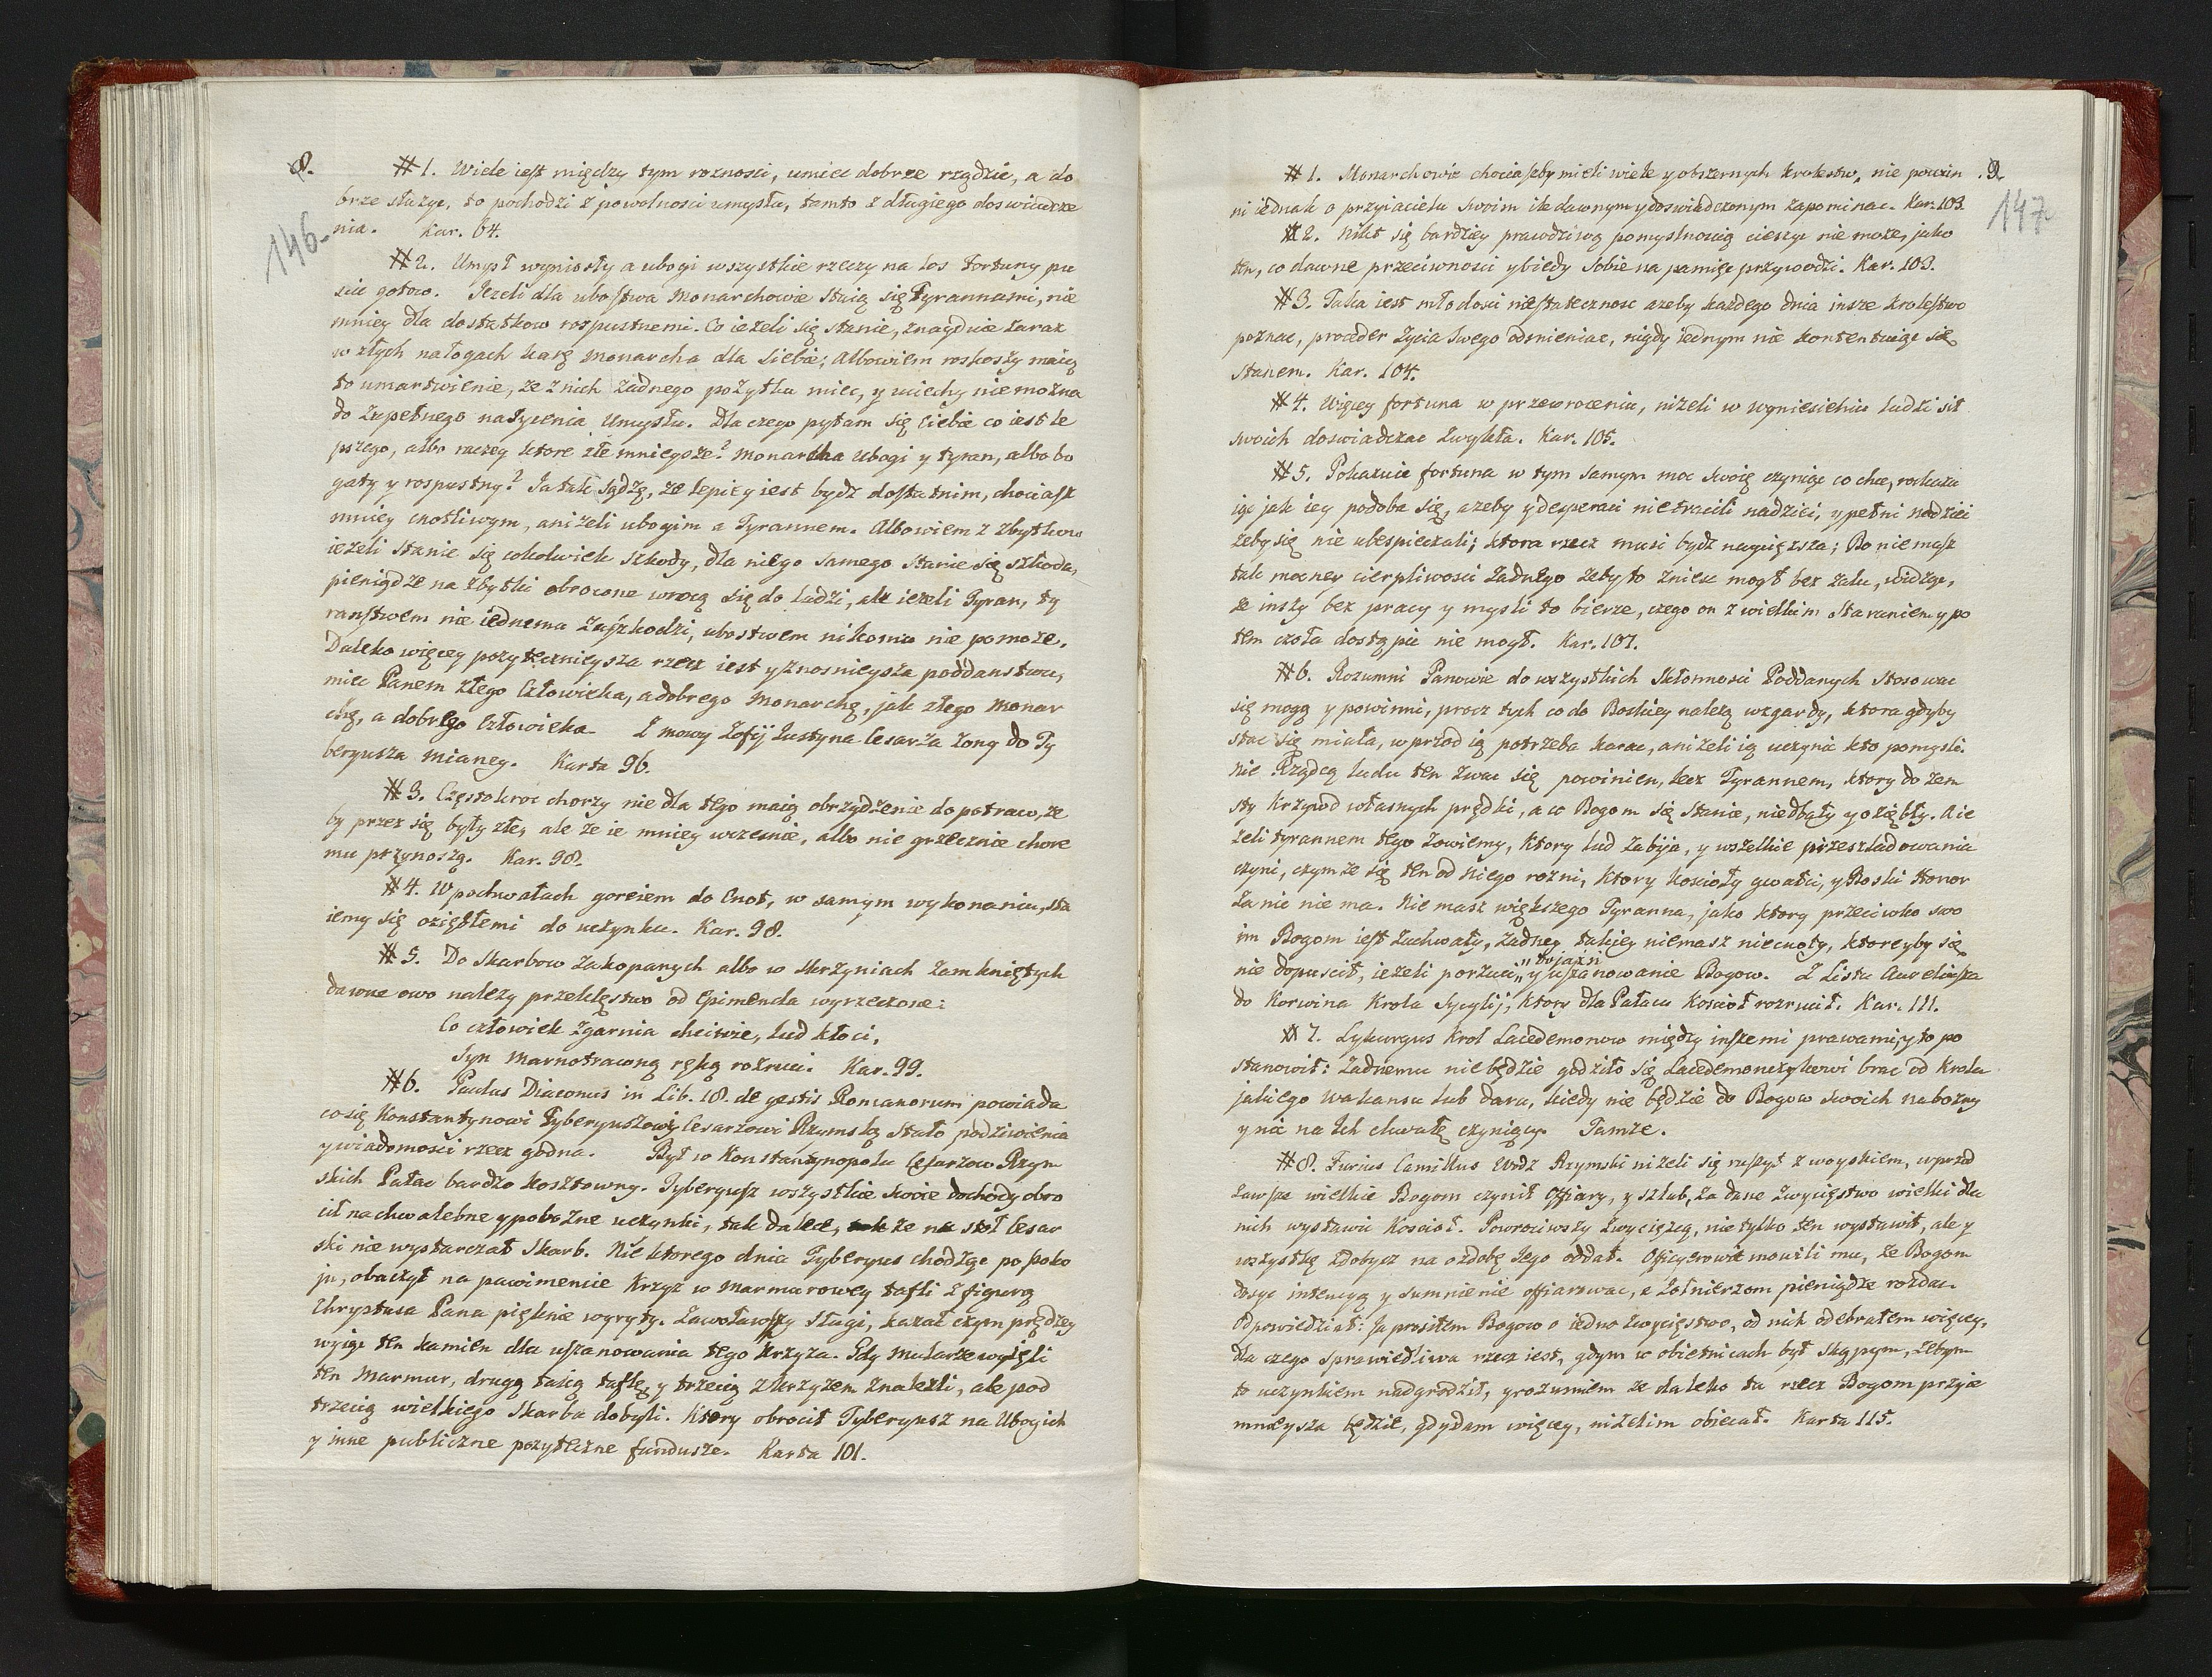 8.
146.
# 1. Wiele iest między tym roznosci, umiec dobrze rządzic, a do
brze służyc, to pochodzi z powolnosci umysłu, tamto z długiego doswiadcze
nia. Kar. 64.
# 2. Umysł wyniosły a ubogi wszystkie rzeczy na los fortuny pu
scic gotow. Jezeli dla ubostwa Monarchowie staią się Tyrannami, nie
mniey dla dostatkow rospustnemi. Co iezeli się stanie, znaydzie zaraz
w złych nałogach karę Monarcha dla siebie; Albowiem roskoszy maią
to umartwienie, ze z nich zadnego pożytku miec, y uciechy nie można
do zupełnego nasycenia Umysłu. Dla czego pytam się Ciebie co iest le
pszego, albo raczey ktore złe mnieysze? Monarcha Ubogi y tyran, albo bo
gaty y rospustny? Ja tak sądzę, ze lepiey iest bydz dostatnim, chociasz
mniey cnotliwym, aniżeli ubogim a Tyrannem. Albowiem z zbytkow
ieżeli stanie się cokolwiek szkody, dla niego samego stanie się szkoda,
pieniądze na zbytki obrocone wrocą się do ludzi, ale iezeli Tyran, ty
ranstwem nie iednemu zaszkodzi, ubostwem nikomu nie pomoże.
Daleko więcey pozytecznieysza rzecz iest y znosnieysza poddanstwu,
miec Panem złego Człowieka, a dobrego Monarchę, jak złego Monar
chę, a dobrego Człowieka. Z mowy Zofij Justyna Cesarza żony do Ty
beryusza mianey. Karta 96.
# 3. Częstokroc chorzy nie dla tego maią obrzydzenie do potraw, że
by przez się były złe, ale że ie mniey wczesnie, albo nie grzecznie chore
mu przynoszą. Kar. 98.
# 4. W pochwałach goreiem do Cnot, w samym wykonaniu, sta
iemy się oziębłemi do uczynku. Kar. 98.
# 5. Do Skarbow zakopanych albo w skrzyniach zamkniętych
dawne owo należy przeklęstwo od Epimenda wyrzeczone:
Co człowiek zgarnia chciwie, lud kłoci,
Syn marnotracną ręką rozruci. Kar. 99.
# 6. Paulus Diaconus in Lib. 18. de gestis Romanorum powiada
co się Konstantynowi Tyberyuszowi Cesarzowi Rzymsko stało podziwienia
y wiadomości rzecz godna. Był w Konstantynopolu Cesarzow Rzym
skich Pałac bardzo kosztowny. Tyberyusz wszystkie swoie dochody obro
cił na chwalebne y pobożne uczynki, tak dalece, że na stoł Cesar
ski nie wystarczał Skarb. Niektorego dnia Tyberyus chodząc po poko
ju, obaczył na pawimencie Krzyz w marmurowey tafli z figurą
Chrystusa Pana pięknie wyryty. Zawoławszy Sługi, kazał czym prędzey
wyiąc ten kamien dla uszanowania tego krzyża. Gdy mularze wyięli
ten Marmur, drugą taką taflę, y trzecią z krzyżem znalezli, ale pod
trzecią wielkiego Skarbu dobyli. Ktory obrocił Tyberyusz na Ubogich
y inne publiczne pożyteczne fundusze. Karta 101.
9.
147
# 1. Monarchowie chociaszby mieli wiele y obszernych krolestw, nie powin
ni iednak o przyiacielu swoim ile dawnym y doswiadczonym zapominac. Kar. 103.
# 2. Nikt się bardziey prawdziwą pomyslnoscią cieszyc nie może, jako
ten, co dawne przeciwnosci y biedy sobie na pamięc przywodzi. Kar. 103.
# 3. Taka iest młodosci niestatecznosc azeby każdego dnia insze krolestwo
poznac, proceder życia swego odmieniac, nigdy iednym nie kontentuiąc się
stanem. Kar. 104.
# 4. Więcey fortuna w przewroceniu, niżeli w wyniesieniu ludzi sił
swoich doswiadczac zwykła. Kar. 105.
# 5. Pokazuie fortuna w tym samym moc swoię czyniąc co chce, roskazu
iąc jak iey podoba się, azeby y desperaci nie tracili nadziei, y pełni nadziei
żeby się nie ubespieczali; ktora rzecz musi bydz naycięższa; Bo niemasz
tak mocney cierpliwosci żadnego żeby to zniesc mogł bez żalu, widząc,
że inszy bez pracy y mysli to bierze, czego on z wielkim staraniem y po
tem czoła dostąpic nie mogł. Kar. 107.
# 6. Rozumni Panowie do wszystkich skłonnosci Poddanych stosowac
się mogą y powinni, procz tych co do Boskiey należą wzgardy, ktora gdyby
stac się miała, w przod ią potrzeba karac, aniżeli ią uczynic kto pomysli.
Nie Rządcą ludu ten zwac się powinien, lecz Tyrannem, ktory do zem
sty krzywd własnych prędki, a w Bogom się stanie, niedbały y oziębły. A ie
żeli tyrannem tego zowiemy, ktory lud zabija, y wszelkie przesladowania
czyni, czymże się ten od niego rożni, ktory koscioły gwałci, y Boski Honor
za nic nie ma. Nie masz większego Tyranna, jako ktory przeciwko swo
im Bogom iest zuchwały, żadney takiey niemasz niecnoty, ktoreyby się
nie dopuscił, ieżeli porzuci „bojazn y uszanowanie Bogow. Z Listu Aureliusza
do Korwina Krola Sycylij, ktory dla Pałacu Koscioł rozrucił. Kar. 111.
# 7. Lykurgus Krol Lacedemonow między inszemi prawami, y to po
stanowił: Żadnemu nie będzie godziło się Lacedemonczykowi brac od Krola
jakiego wakansu lub daru, kiedy nie będzie do Bogow swoich nabożny
y nic na Ich chwałę czyniący. Tamże.
# 8. Furius Camillus Wodz Rzymski niżeli się ruszył z woyskiem, wprzod
zawsze wielkie Bogom czynił offiary, y szlub, za dane zwycięstwo wielki dla
nich wystawic Koscioł. Powrociwszy zwycięzcą, nie tylko ten wystawił, ale y
wszystkę zdobycz na ozdobę Jego oddał. Officyerowie mowili mu, że Bogom
dosyc intencyą y sumnienie offiarowac, a żołnierzom pieniądze rozdac.
Odpowiedział: Ja prosiłem Bogow o iedno zwycięstwo, od nich odebrałem więcey,
dla czego sprawiedliwa rzecz iest, gdym w obietnicach był skąpym, żebym
to uczynkiem nadgrodził, y rozumiem że daleko ta rzecz Bogom przyie
mnieysza będzie, gdy dam więcey, niżelim obiecał. Karta 115.